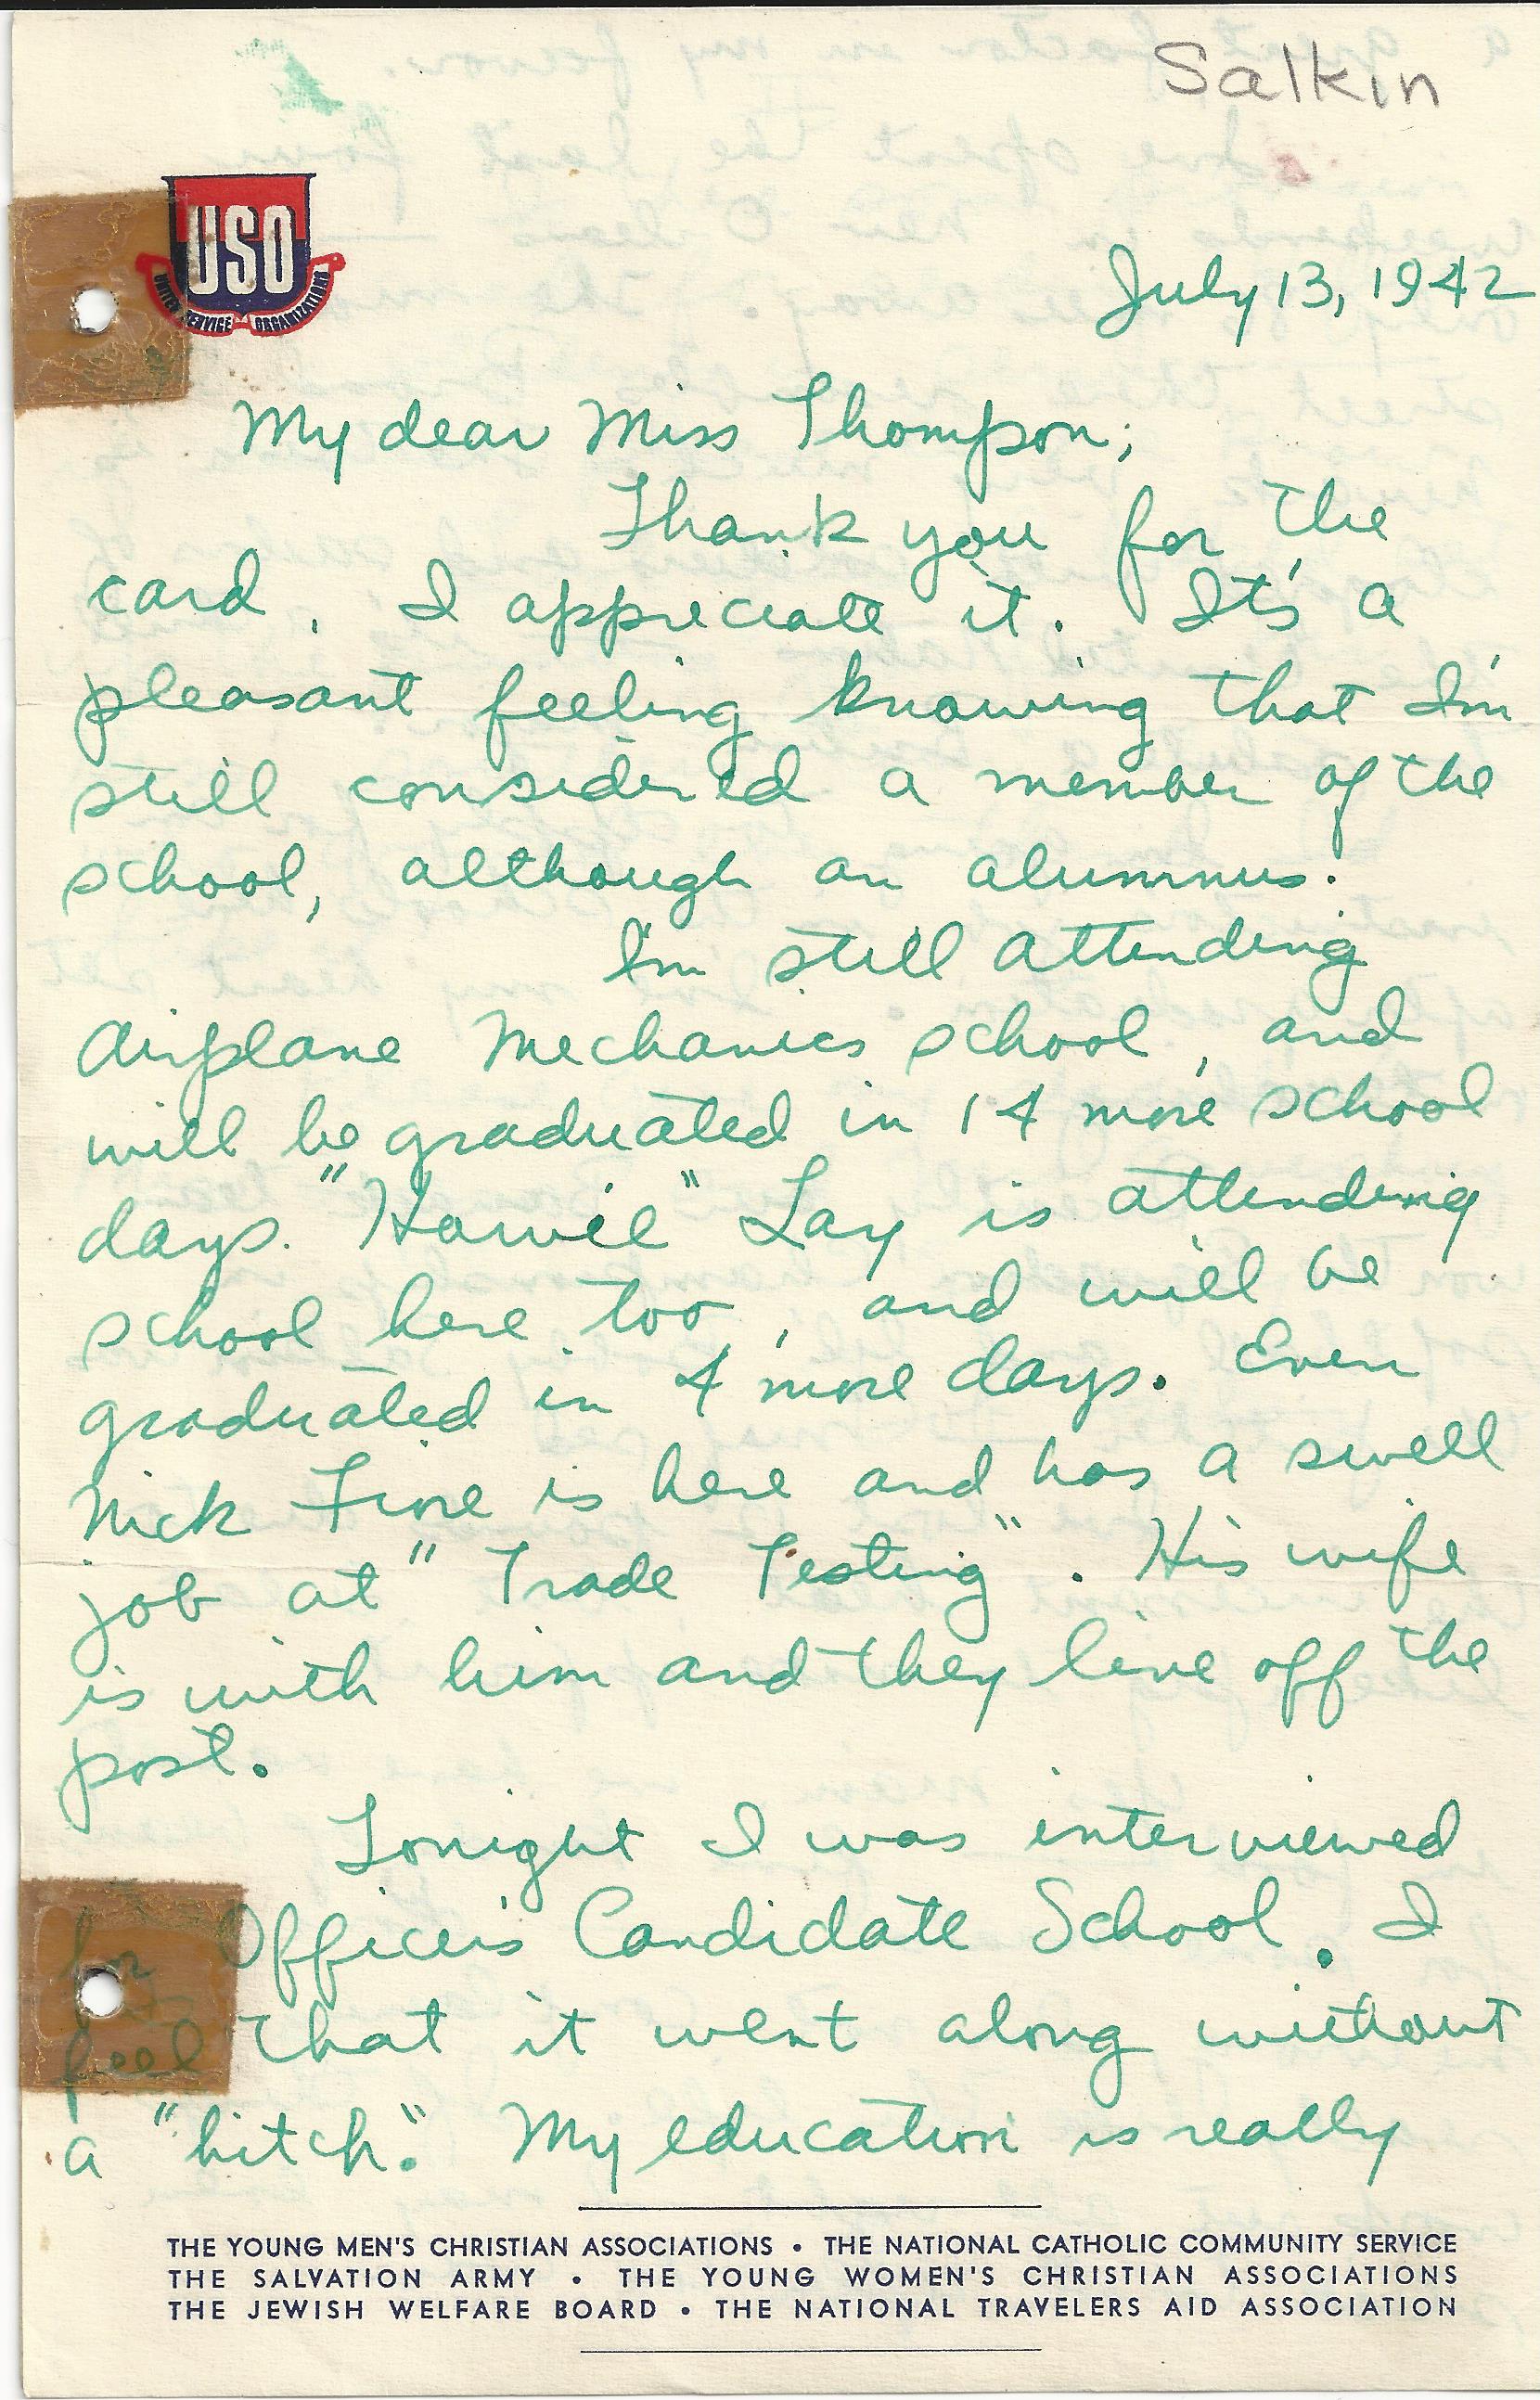 Salkin
USO
UNITED SERVICE ORGANIZATIONS
July 13, 1942
My dear Miss Thompson;
Thank you for the
card. I appreciate it. It's a
pleasant feeling knowing that I'm
still considered a member of the
school, although an alumnus.
I'm still attending
Airplane Mechanics school, and
will be graduated in 14 more school
days. "Howie" Lay is attending
school here too, and will be
graduated in 4 more days. Even
Nick Fiore is here and has a swell
job at "Trade Testing". His wife
is with him and they live off the
post.
Tonight I was interviewed
for Officer's Candidate School. I
feel that it went along without
a "hitch." My education is really
THE YOUNG MEN'S CHRISTIAN ASSOCIATIONS • THE NATIONAL CATHOLIC COMMUNITY SERVICE
THE SALVATION ARMY • THE YOUNG WOMEN'S CHRISTIAN ASSOCIATIONS
THE JEWISH WELFARE BOARD • THE NATIONAL TRAVELERS AID ASSOCIATION